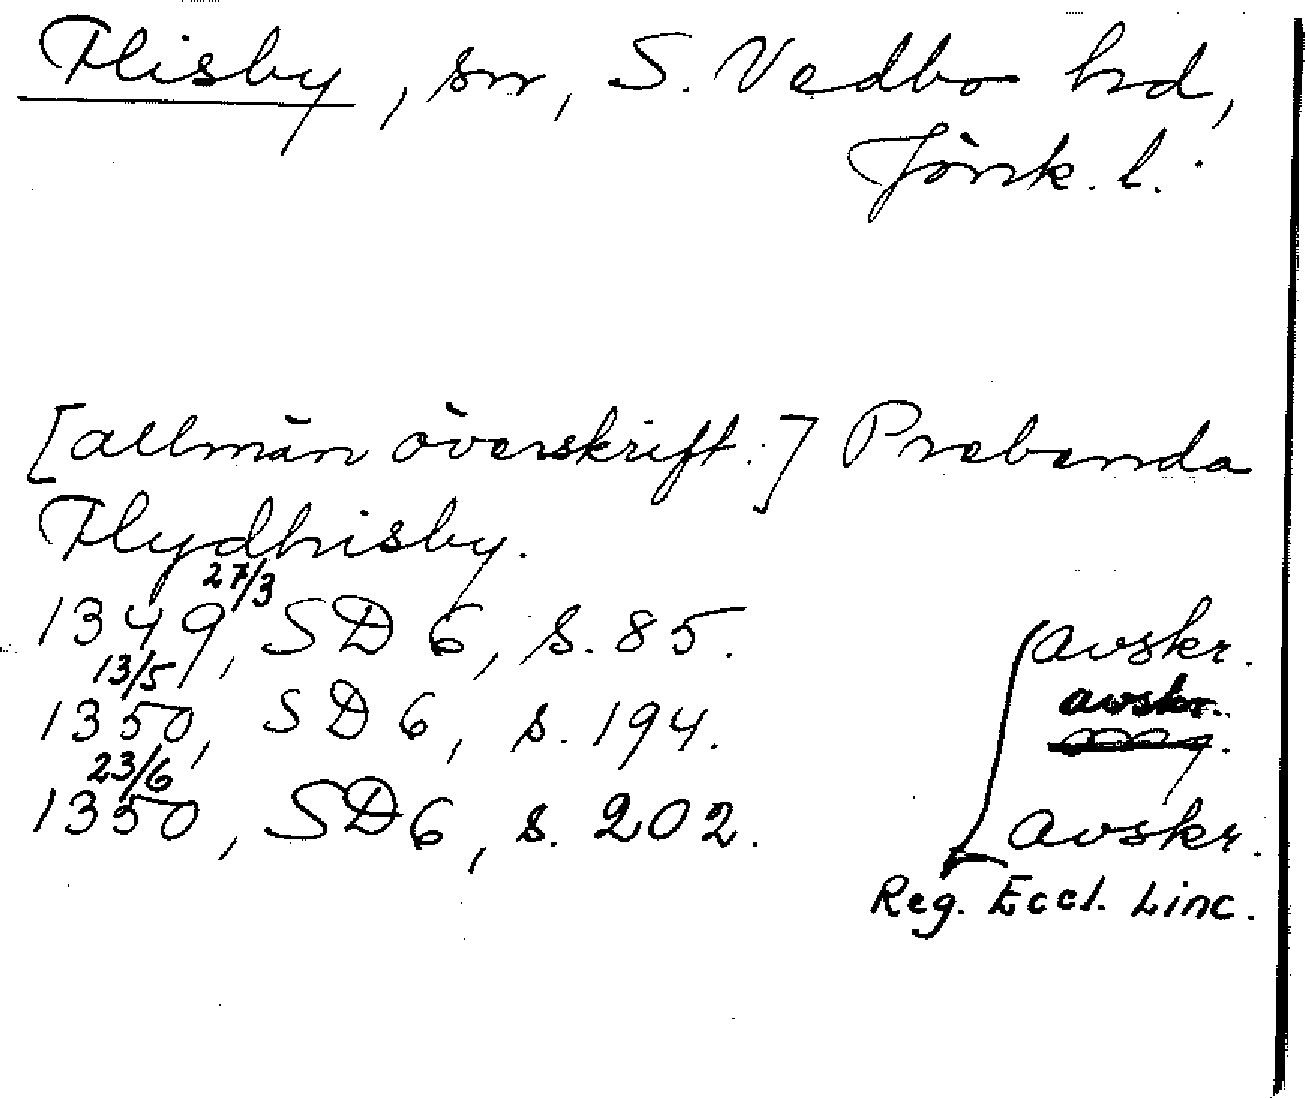 Flisby, sn, S. Vedbo hd,
Jönk. l.
[allmän överskrift:] Prebenda
Flydhrisby.
27/3
1349, SD 6, s. 85. avskr.
13/5
1350, SD 6, s. 194. avskr.
23/6
1350, SD 6, s. 202. avskr.
Reg. Eccl. Linc.